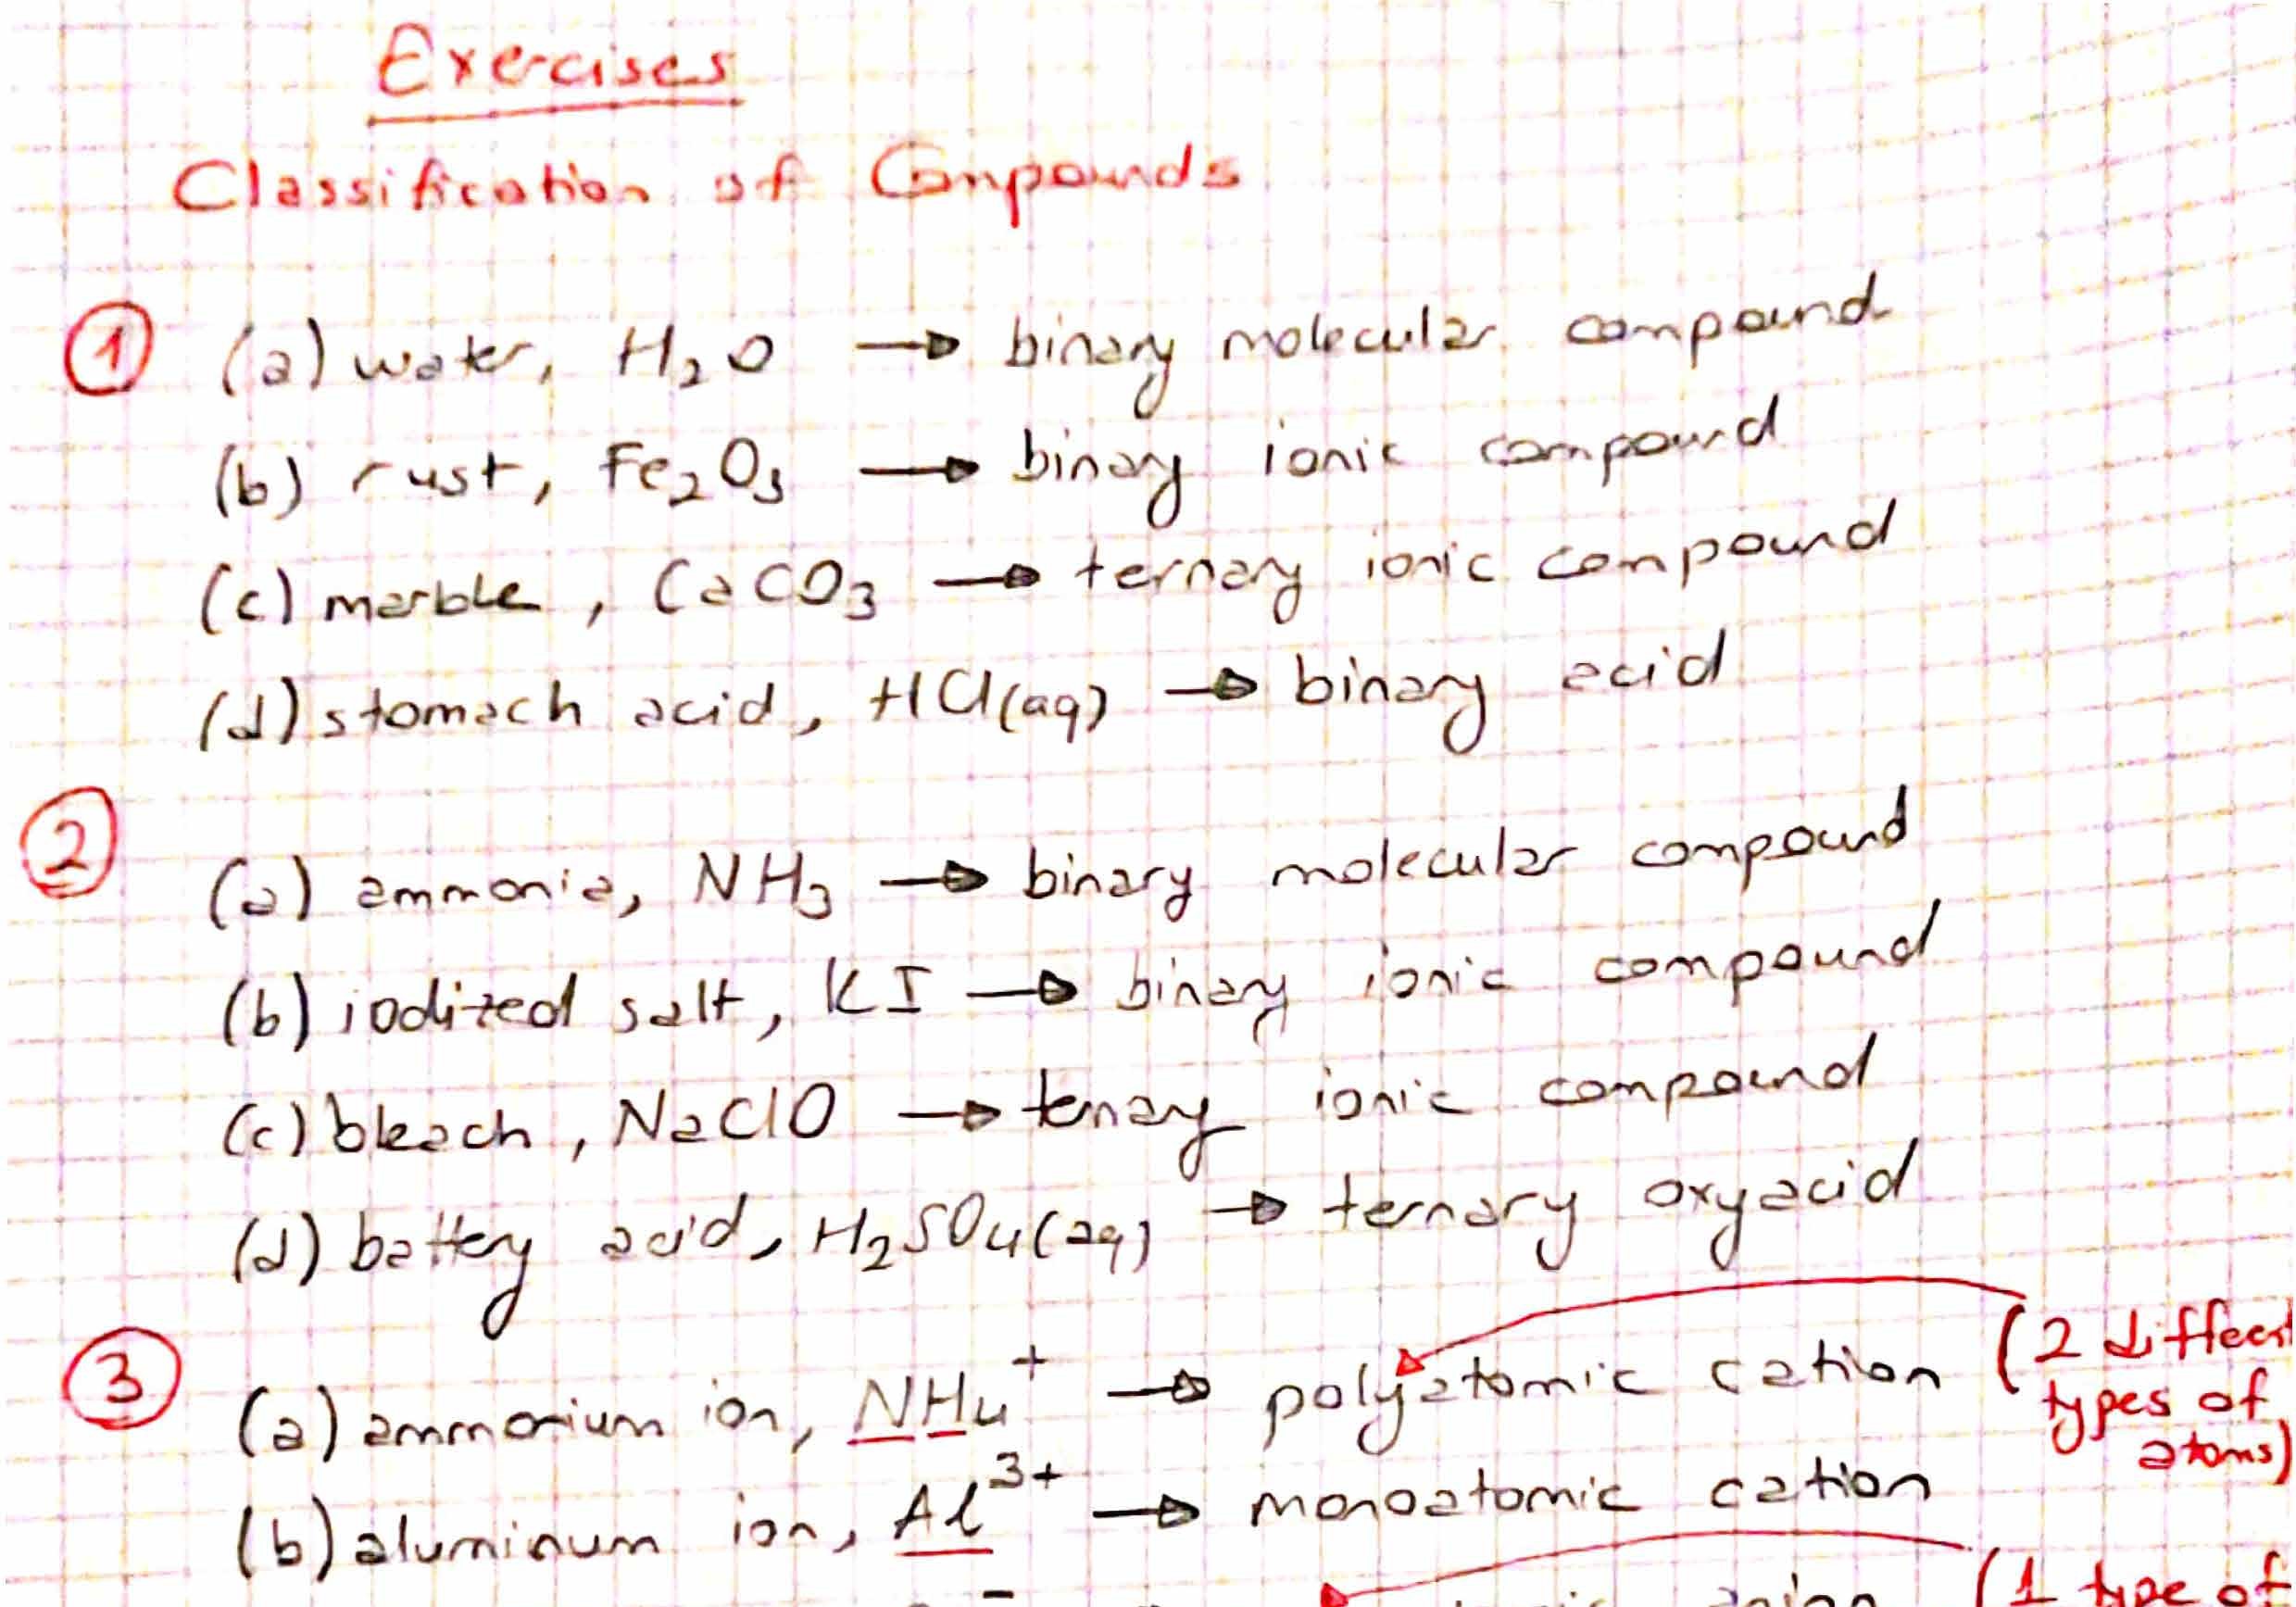 Exercises
Classification of Compounds
① (a) water, H₂O → binary molecular compound
(b) rust, Fe₂O₃ → binary ionic compound
(c) marble, CaCO₃ → ternary ionic compound
(d) stomach acid, HCl(aq) → binary acid
② (a) ammonia, NH₃ → binary molecular compound
(b) iodized salt, KI → binary ionic compound
(c) bleach, NaClO → ternary ionic compound
(d) battery acid, H₂SO₄(aq) → ternary oxyacid
③ (a) ammonium ion, NH₄⁺ → polyatomic cation (2 different
types of
atoms)
(b) aluminum ion, Al³⁺ → monoatomic cation
anion (1 type of